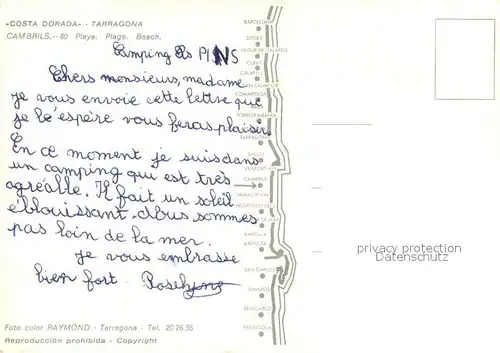 «COSTA DORADA» - TARRAGONA
CAMBRILS.—80 Playa. Plage. Beach.
Camping Los PINS
Chers monsieurs, madame
je vous envoie cette lettre que
je l'espère vous feras plaisir
En ce moment je suis dans
un camping qui est très
agréable. Il fait un soleil
éblouissant. Nous sommes
pas loin de la mer.
je vous embrasse
bien fort.
BARCELONA
SITGES
CUNIT
CALAFELL
TARRAGONA
SALOU
CAMBRILS
AMPOLLA
AMPOSTA
SAN CARLOS
VINAROZ
BENICARLO
PEÑISCOLA
privacy protection
Datenschutz
Foto color RAYMOND - Tarragona - Tel. 20 26 35
Reproducción prohibida - Copyright